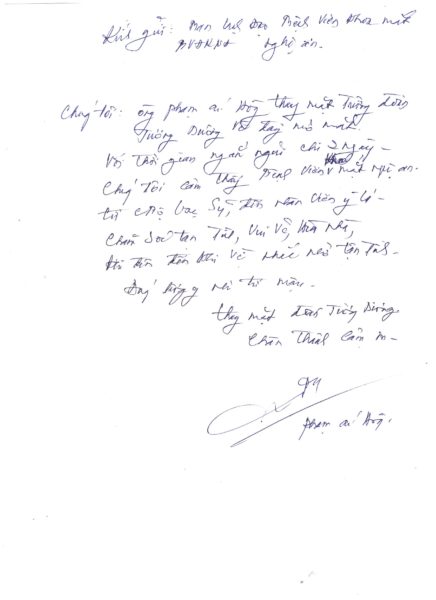 Kính gửi: Ban lãnh đạo Bệnh viện khoa mắt
BVĐKNA Nghệ An.
Chúng tôi: ông phạm cú Hồng thay mặt Trưởng đoàn
Tương Dương về đây mổ mắt.
Với thời gian ngắn ngủi chỉ 2 ngày -
Chúng tôi cảm thấy Bệnh viện mắt Nghệ an.
từ các Bác Sỹ, đến nhân viên y tá -
Chăm Sóc tận Tình, Vui Vẻ, Hòa nhã,
khi đến đón khi về nhắc nhở tận Tình -
lương y như từ mậu -
thay mặt đoàn Tương Dương
Chân Thành cảm ơn -
phạm cú Hồng.